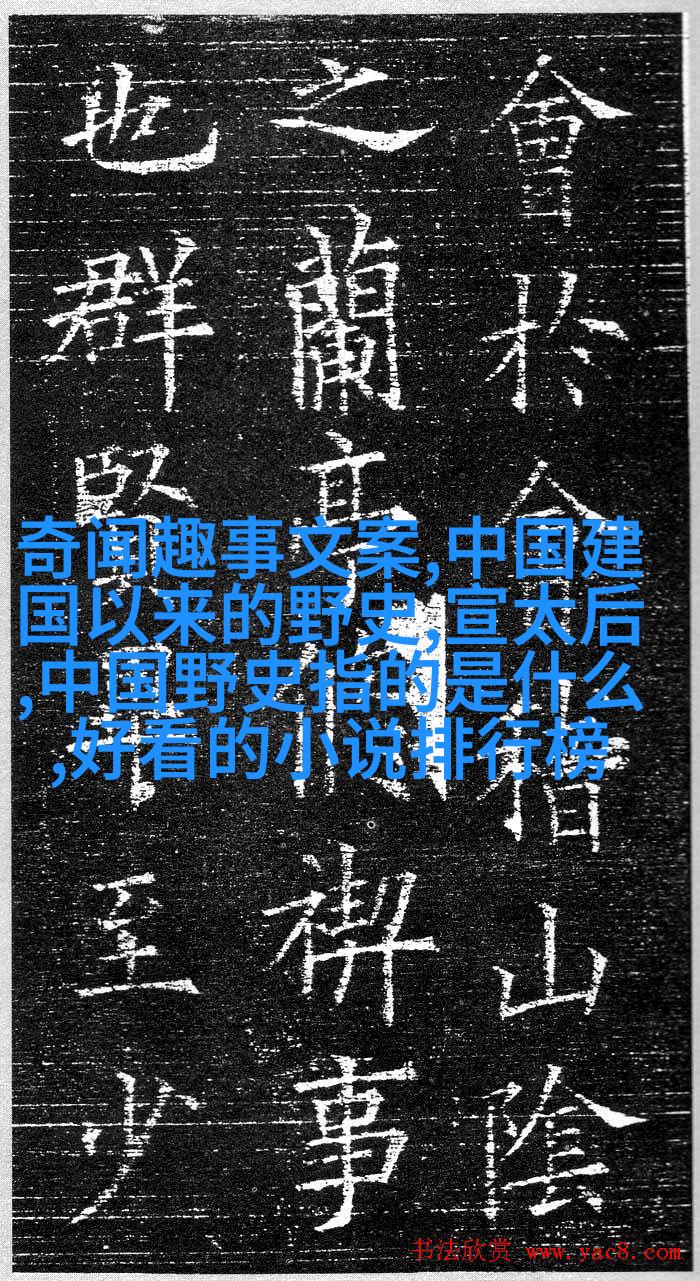 會於會稽山陰
之蘭亭脩禊事
也群賢畢至少
奇闻趣事文案,中国建
国以来的野史,宣太后
,中国野史指的是什么
,好看的小说排行榜
书法欣赏 www.yac8.com